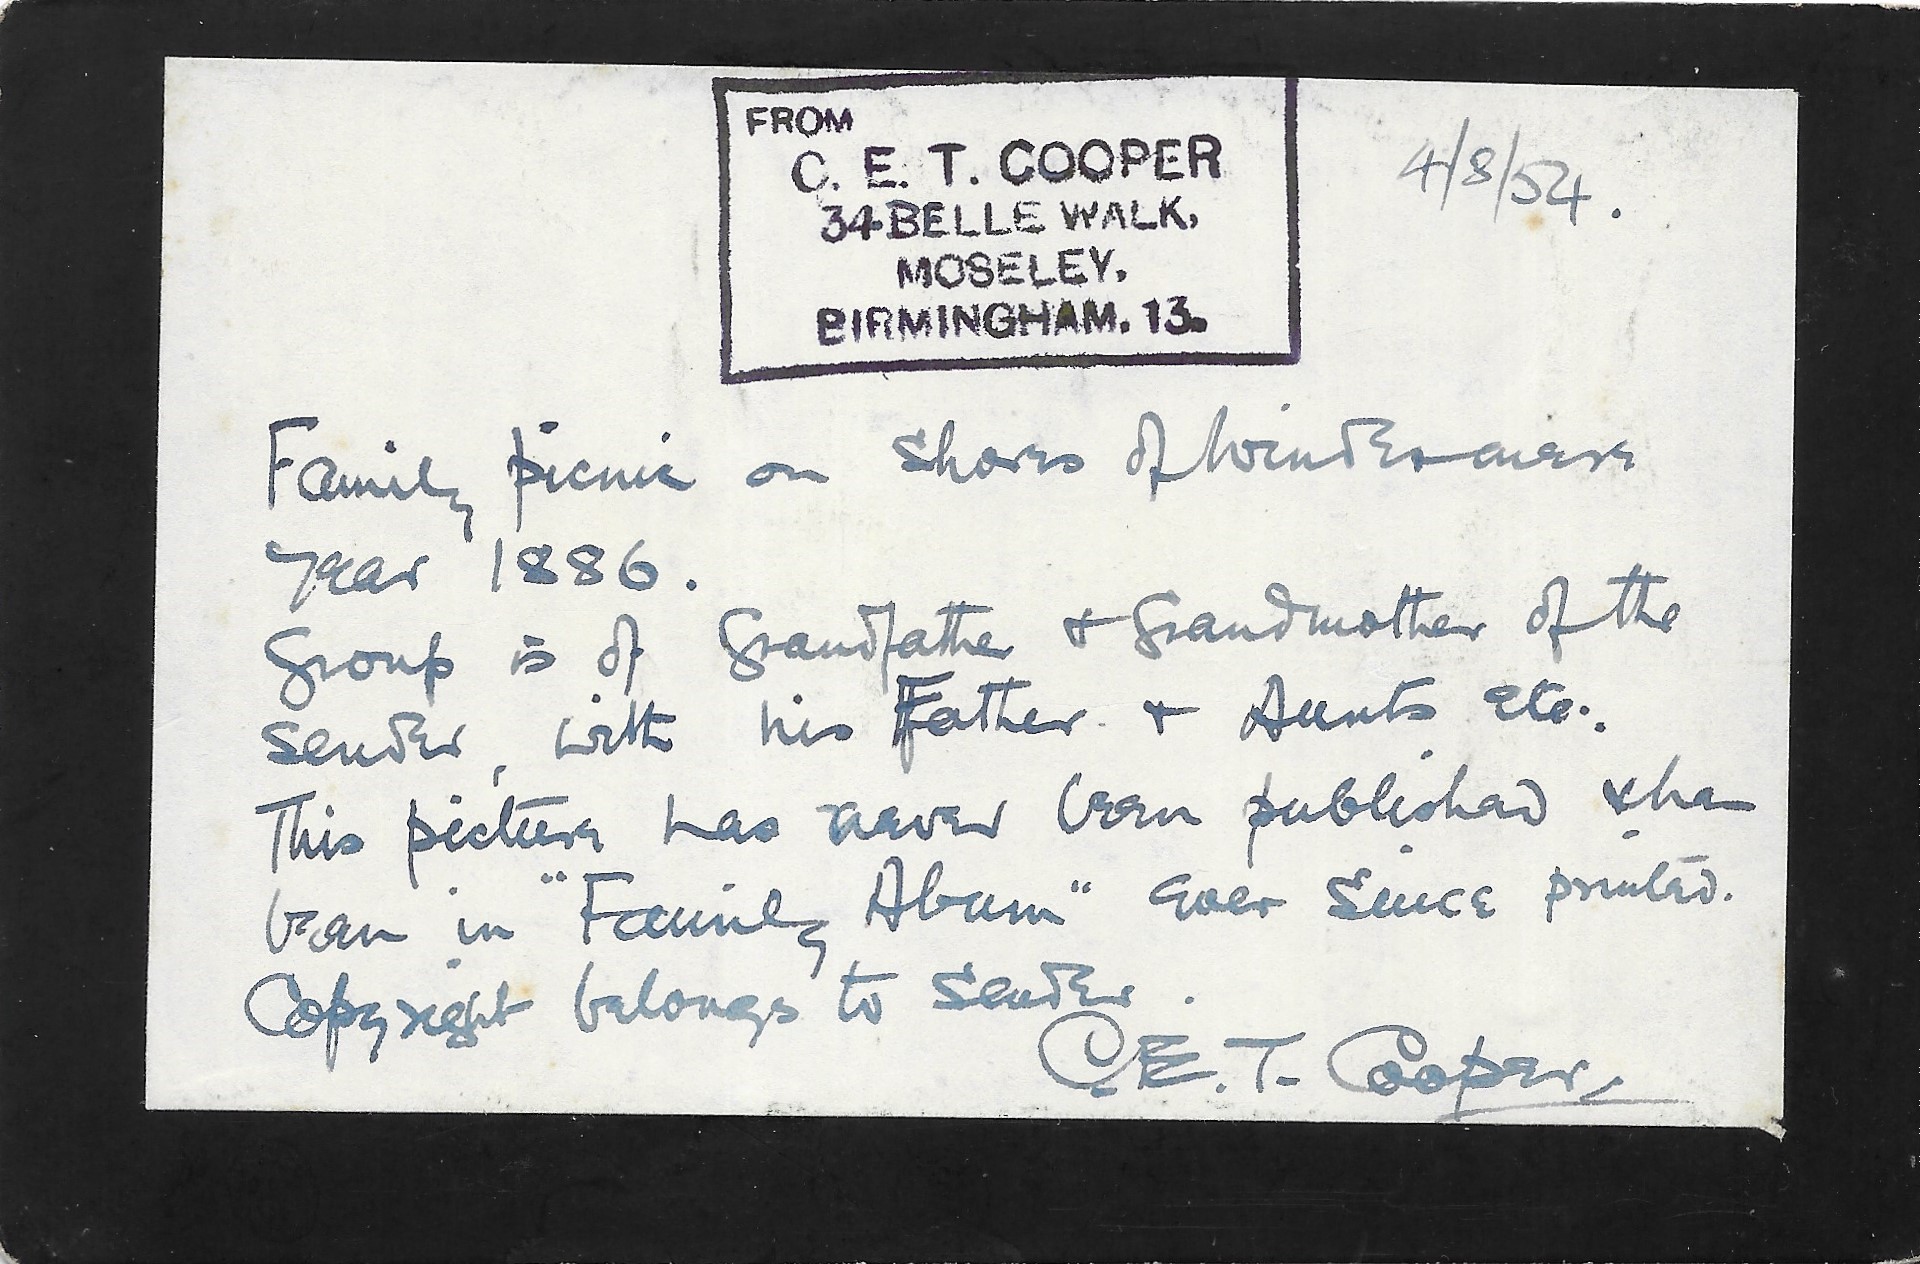 FROM
C. E. T. COOPER
34 BELLE WALK,
MOSELEY,
BIRMINGHAM. 13.
4/8/54.
Family picnic on shores of Windermere
year 1886.
Group is of Grandfather & Grandmother of the
sender, with his Father & Aunts etc.
This picture has never been published & has
been in "Family Abum" ever since printed.
Copyright belongs to sender.
C.E.T. Cooper.